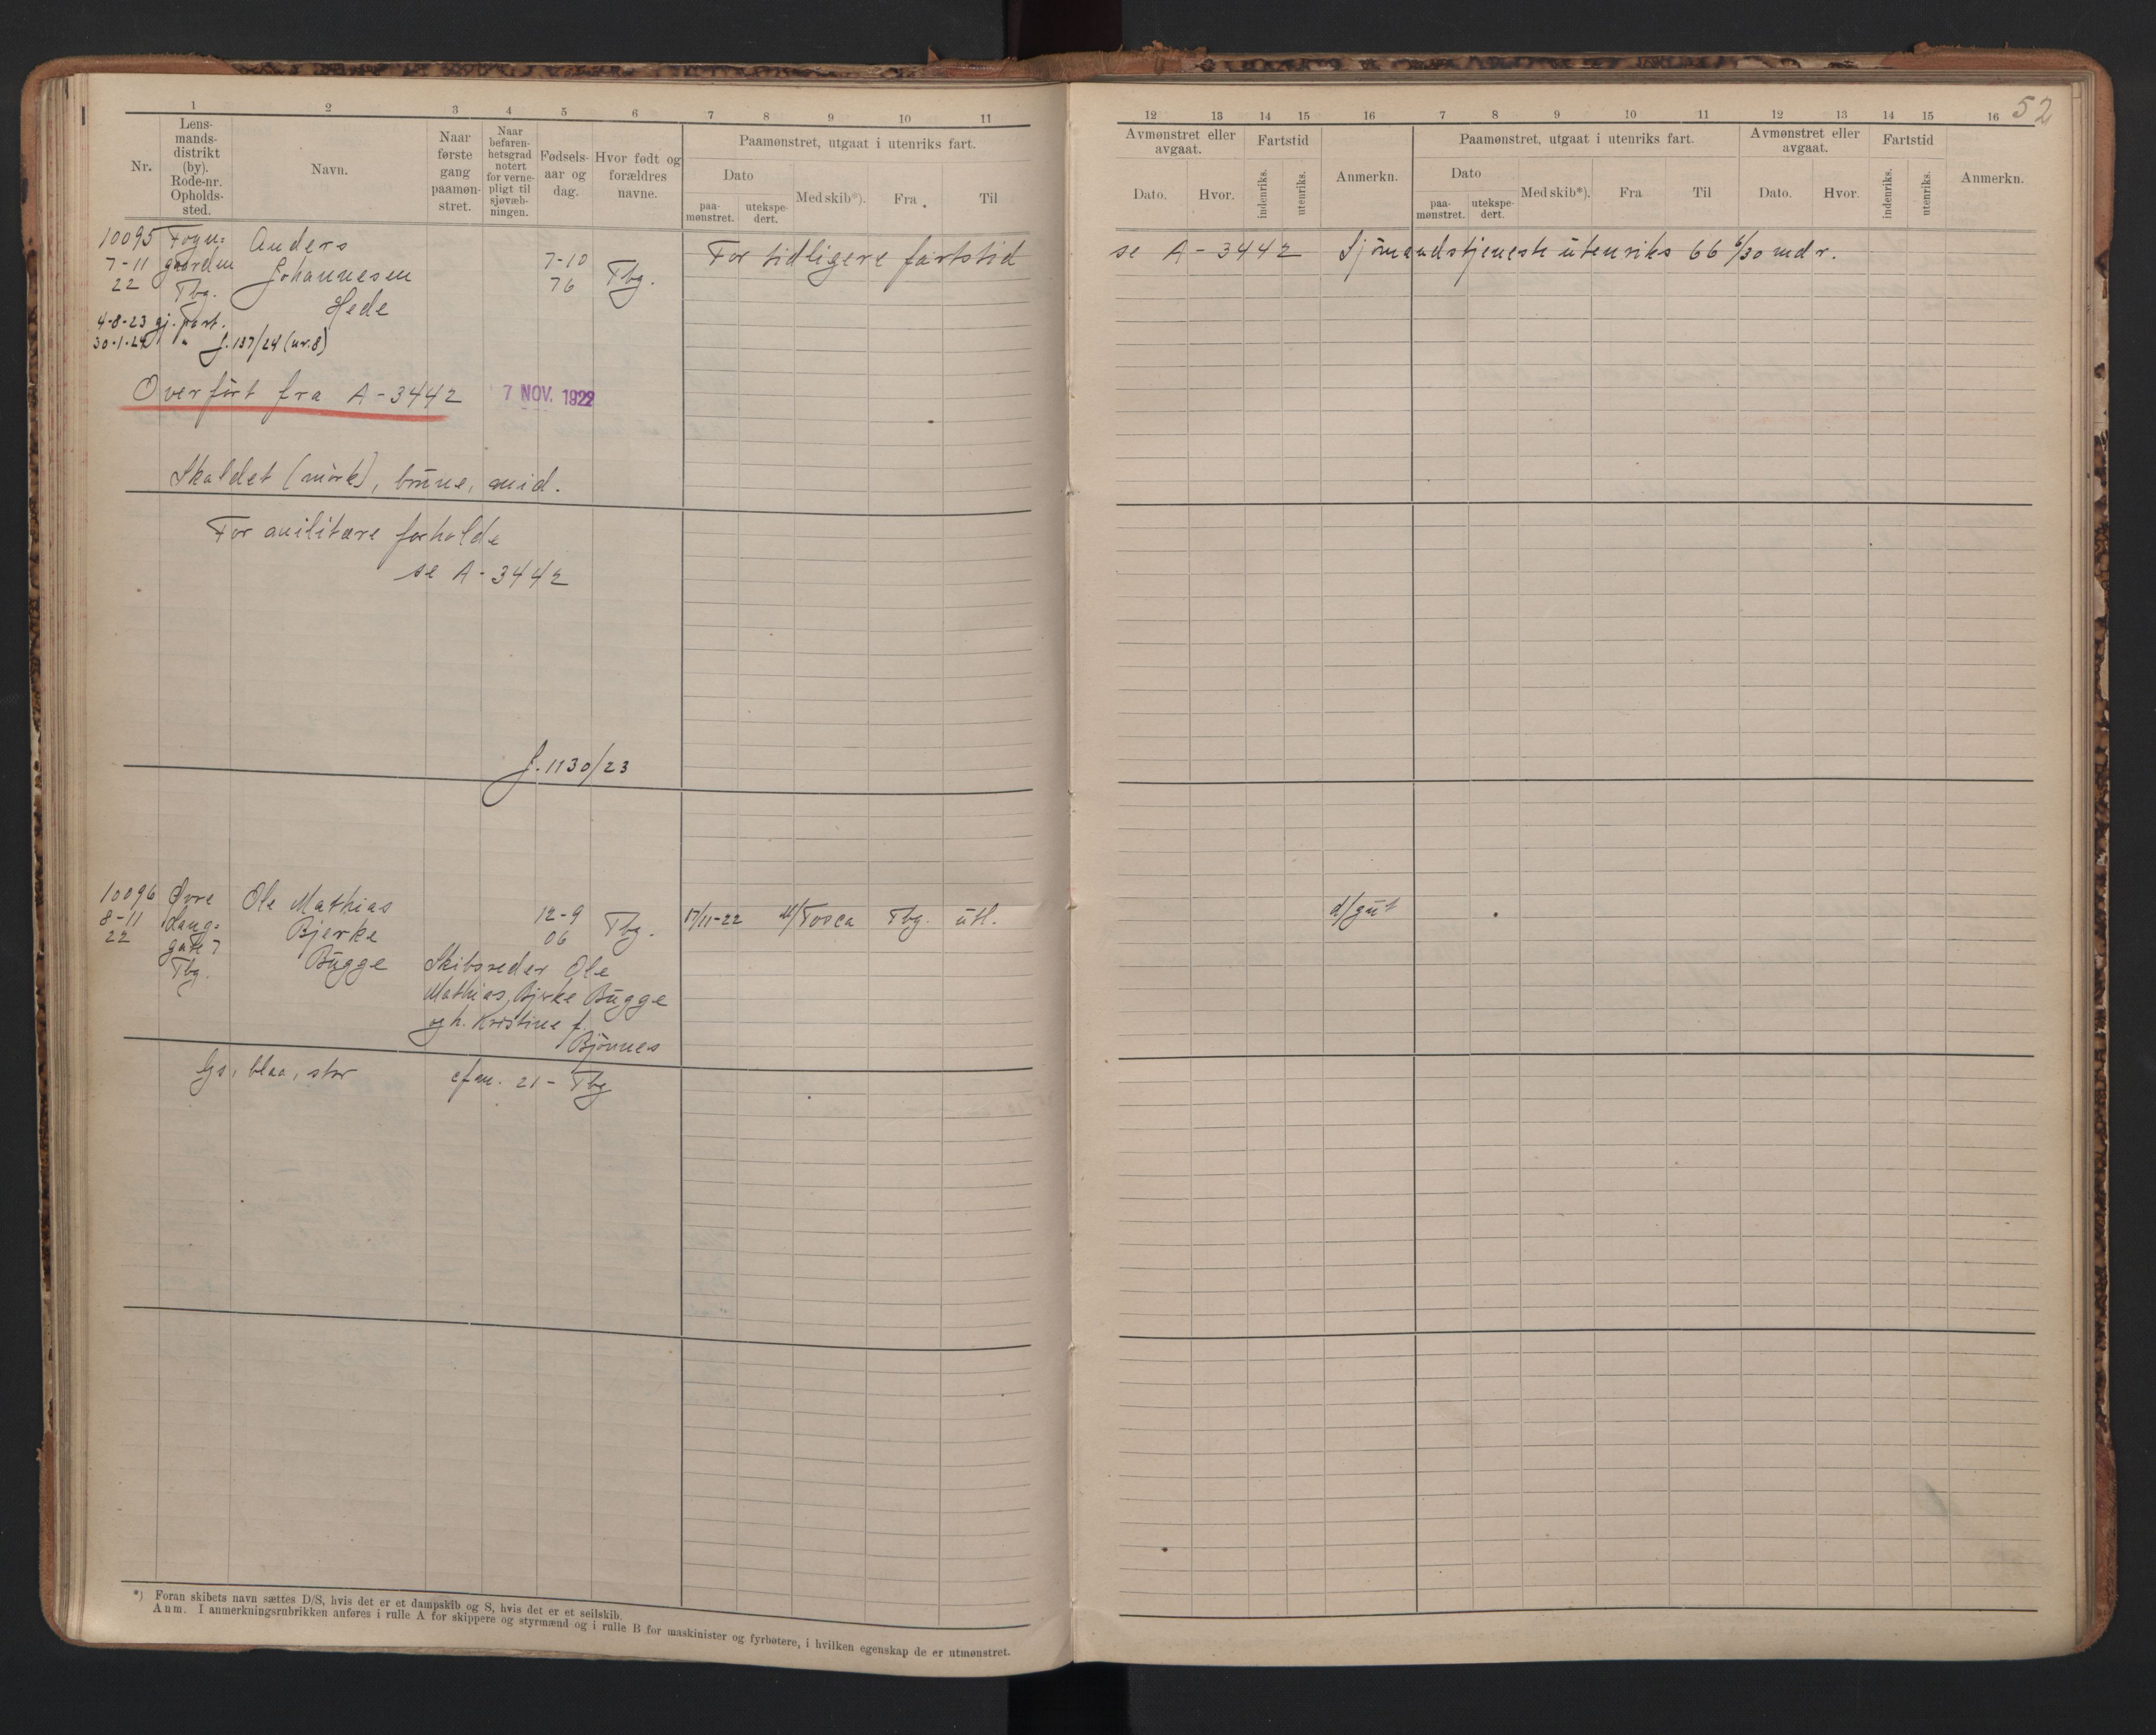 1 2 3 4 5 6 7 8 9 10 11
Nr.
Lens-
mands-
distrikt
(by).
Rode-nr.
Opholds-
sted.
Navn.
Naar
første
gang
paamøn-
stret.
Naar
befaren-
hetsgrad
notert
for verne-
pligt til
sjøvæb-
ningen.
Fødsels-
aar og
dag.
Hvor født og
forældres
navne.
Paamønstret, utgaat i utenriks fart.
Dato
paa-
mønstret.
utekspe-
dert.
Med skib*).
Fra
Til
10095
7-11
22
gaarden
Tbg.
Anders
Johannesen
Hede
7-10
76
Tbg.
For tidligere fartstid
4-8-23 gj. part.
30-1-24 " J. 137/24 (nr. 8)
Overført fra A-3442
7 NOV. 1922
Skaldet (mørk), brune, mid.
For militære forholde
se A-3442
J. 1130/23
10096
8-11
22
Øvre
Lang-
gate 7
Tbg.
Ole Mathias
Bjerke
Bugge
12-9
06
Tbg.
17/11-22 Tosca Tbg. utl.
Skibsreder Ole
Mathias Bjerke Bugge
og h. Kristine f.
Bjønnes
Gs, blaa, stor
efm. 21 - Tbg
*) Foran skibets navn sættes D/S, hvis det er et dampskib og S, hvis det er et seilskib.
Anm. I anmerkningsrubrikken anføres i rulle A for skippere og styrmænd og i rulle B for maskinister og fyrbøtere, i hvilken egenskap de er utmønstret.
52
12 13 14 15 16 7 8 9 10 11 12 13 14 15 16
Avmønstret eller
avgaat.
Dato.
Hvor.
Fartstid
indenriks.
utenriks.
Anmerkn.
Paamønstret, utgaat i utenriks fart.
Dato
paa-
mønstret.
utekspe-
dert.
Med skib*).
Fra
Til
Avmønstret eller
avgaat.
Dato.
Hvor.
Fartstid
indenriks.
utenriks.
Anmerkn.
se A-3442 Sjømandstjeneste utenriks 66 6/30 mdr.
d/gut